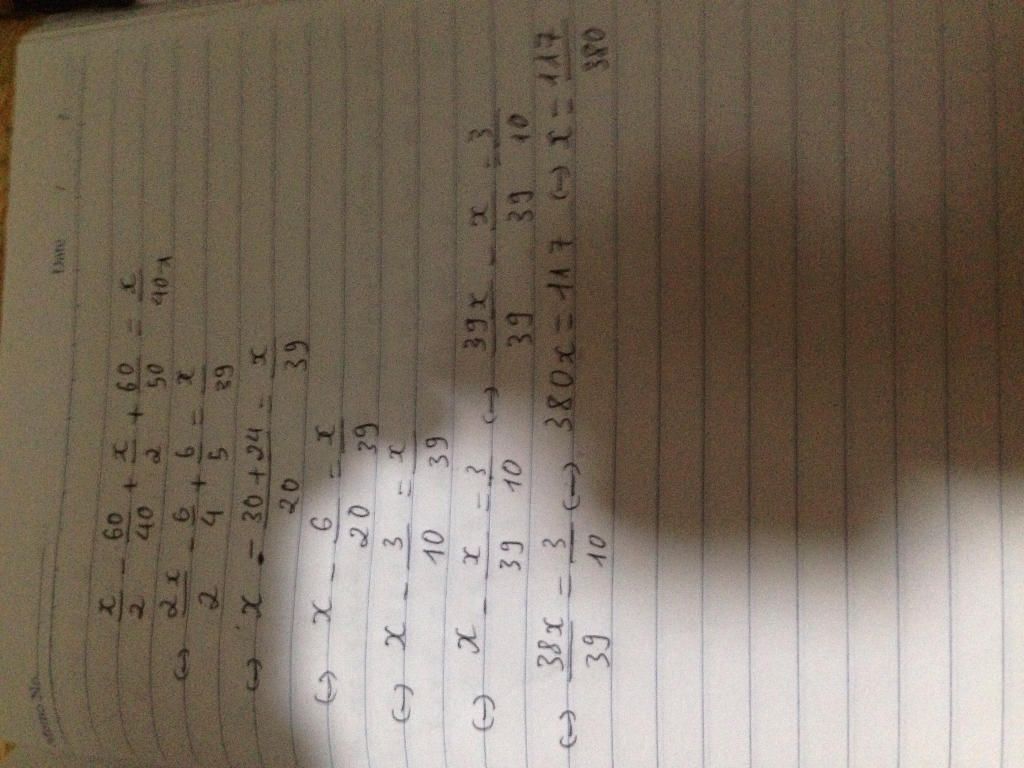 Memo No.
Date / /
x/2 - 60/40 + x/2 + 60/50 = x/40-1
(→) 2x/2 - 6/4 + 6/5 = x/39
(→) x - 30+24/20 = x/39
(→) x - 6/20 = x/39
(→) x - 3/10 = x/39
(→) x - x/39 = 3/10 (→) 39x/39 - x/39 = 3/10
(→) 38x/39 = 3/10 (→) 380x = 117 (→) x = 117/380